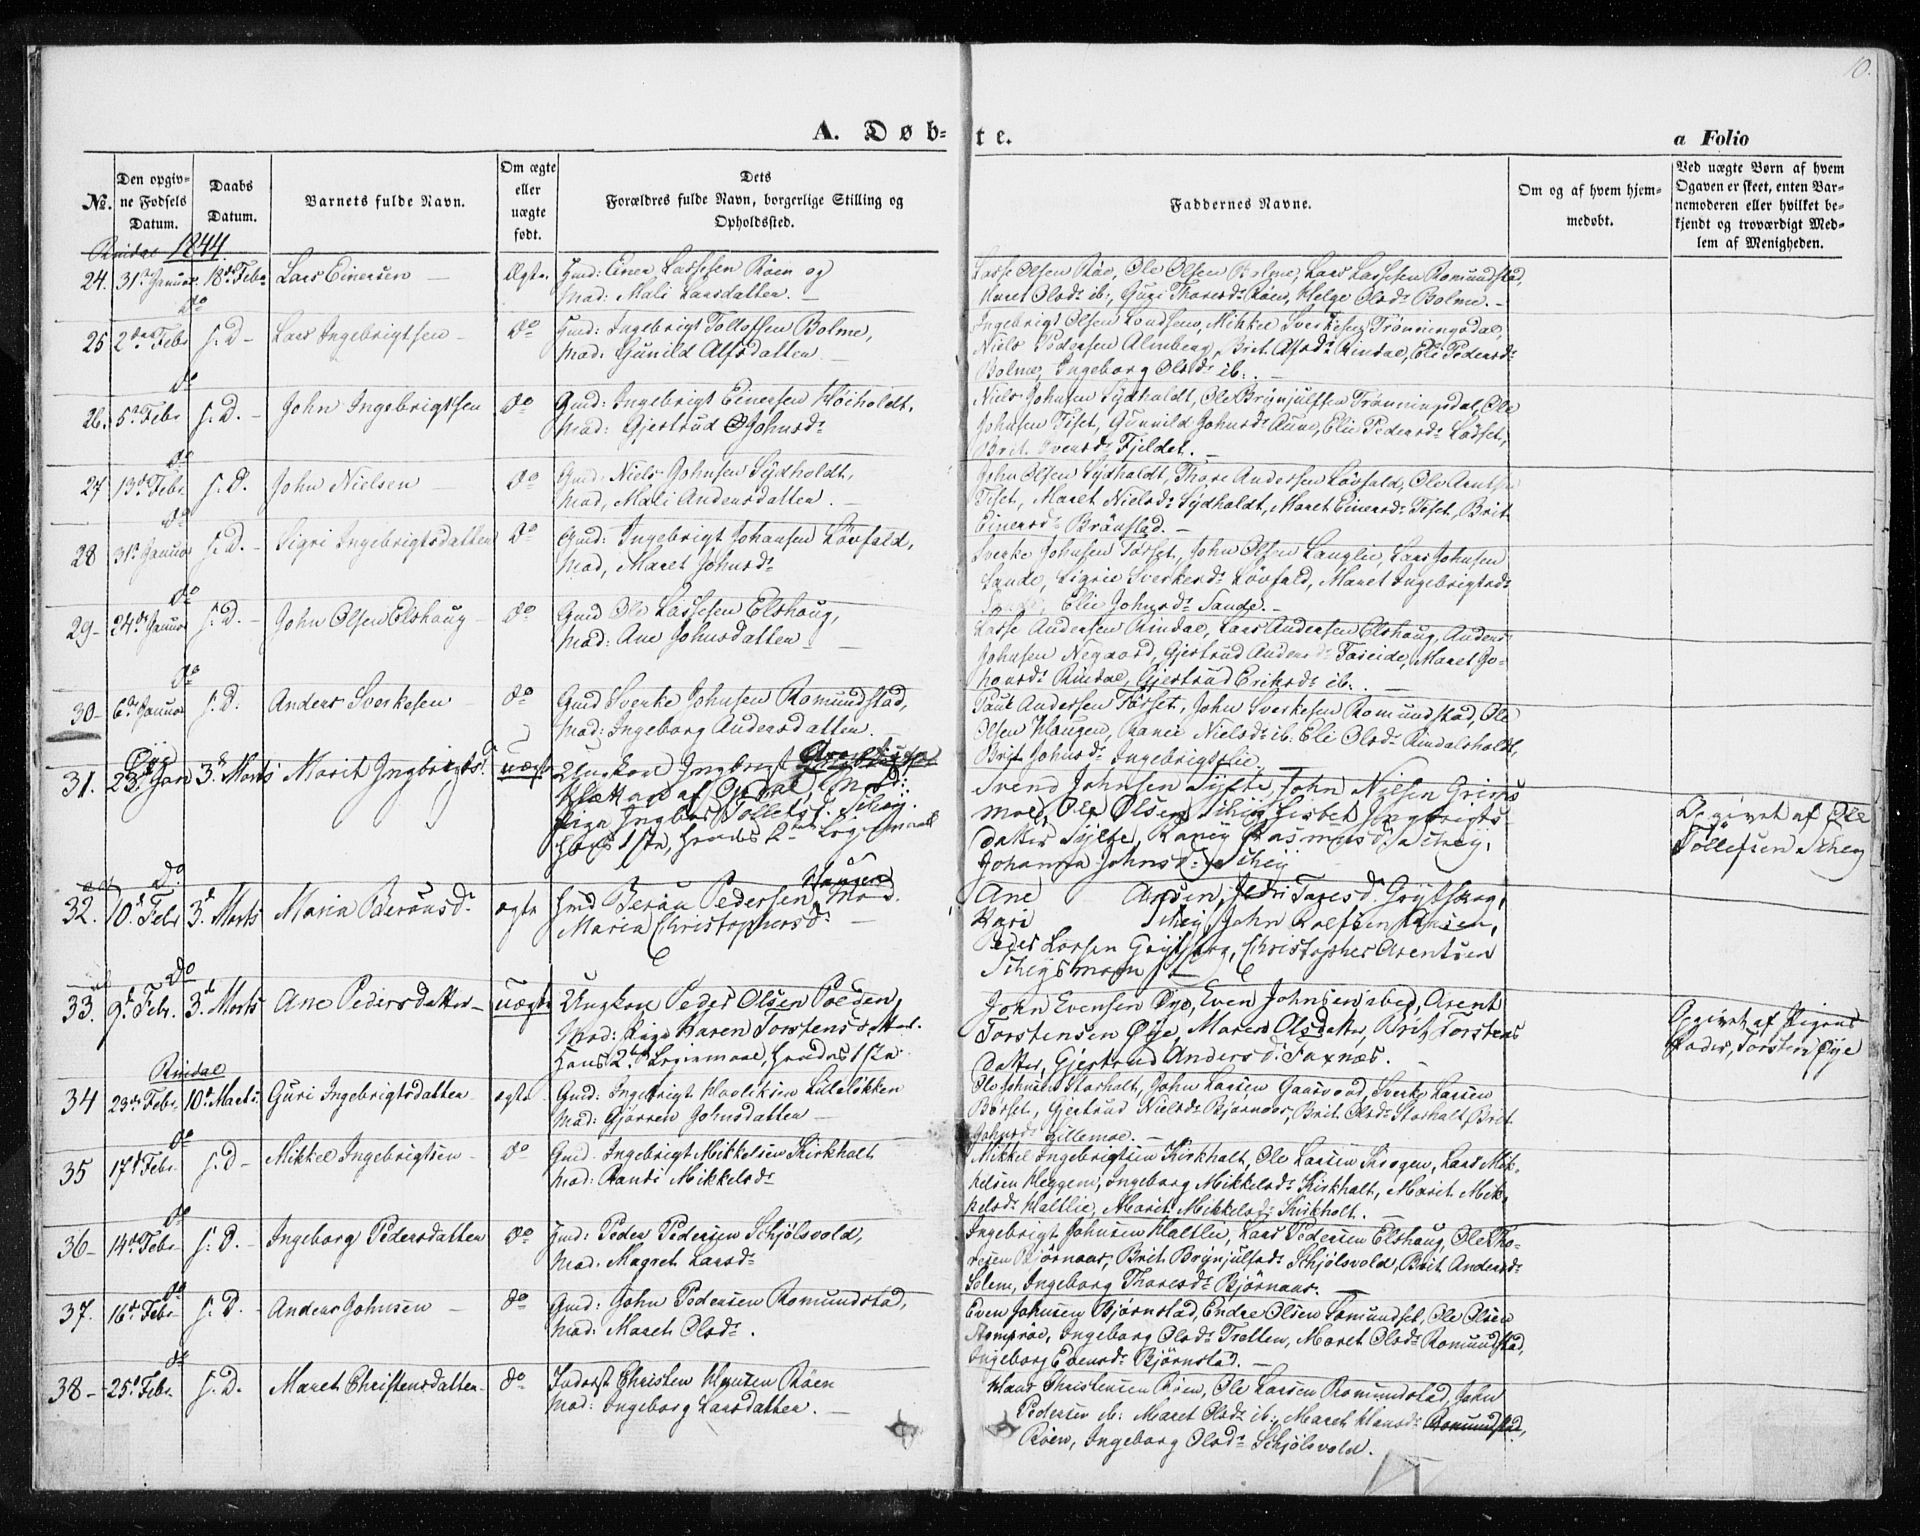 10.
A. Døb-te.
a Folio
No.
Den opgiv-
ne Fødsels
Datum.
Daabs
Datum.
Barnets fulde Navn.
Om ægte
eller
uægte
født.
Dets
Forældres fulde Navn, borgerlige Stilling og
Opholdssted.
Faddernes Navne.
Om og af hvem hjem-
medøbt.
Ved uægte Børn af hvem
Opgaven er skeet, enten Bar-
nemoderen eller hvilket be-
kjendt og troværdigt Med-
lem af Menigheden.
Rindal 1844.
24. 31te Januar 18de Febr. Lars Einersen Ægte. Gmd: Einer Lassesen Röen og
Mad: Mali Larsdatter.
Lasse Olsen Röe, Ole Olsen Bolme, Lars Lassesen Romundstad,
Maret Olsdr ib., Guri Thoresdr Röen, Helge Olsdr Bolme.
do
25 2den Febr s. D. Lars Ingebrigtsen do Gmd: Ingebrigt Tollefsen Bolme,
Mad: Gunild Alfsdatter.
Ingebrigt Olsen, Mikkel Sverkesen Trönningsdal,
Niels Pedersen Almberg, Brit Alfsdr Rindal, Eli Pedersdr
Bolme, Ingeborg Olsdr ib.
do
26. 5te Febr s. D. John Ingebrigtsen do Gmd: Ingebrigt Einersen Höiholdt,
Mad: Gjertrud Johnsdr
Niels Johnsen Sydholdt, Ole Brynjulfsen Trönningsdal, Ole
Johnsen Töset, Gunnild Johnsdr Aune, Elie Pedersdr Lödset,
Brit Svensdr Fjeldet.
do
27 13de Febr s. D. John Nielsen do Gmd: Niels Johnsen Sydholdt,
Mad, Mali Andersdatter.
John Olsen Sydholdt, Thore Andersen Lövfald, Ole Arntsen
Töset, Maret Nielsdr Sydholdt, Maret Einersdr Töset, Brit
Einersdr Brönstad.
do
28 31te Januar s. D. Sigri Ingebrigtsdatter do Gmd: Ingebrigt Johansen Lövfald,
Mad, Maret Johnsdr
Sverke Johnsen Törset, John Olsen Langlie, Lars Johnsen
Sande, Sigrie Sverkesdr Lövfald, Maret Ingebrigtsdr
Elie Johnsdr Sande.
do
29 24de Januar s. D. John Olsen Elshaug do Gmd Ole Lassesen Elshaug,
Mad: Ane Johnsdatter
Lasse Andersen Rindal, Lars Andersen Elshaug, Anders
Johnsen Negaard, Gjertrud Andersdr Fæeide, Maret Jo-
honsdr Rindal, Gjertrud Eriksdr ib.
do
30 6te Januar s. D. Anders Sverkesen do Gmd Sverke Johnsen Romundstad,
Mad: Ingeborg Andersdatter.
Paul Andersen Törset, John Sverkesen Romundstad, Ole
Olsen Haugen, Ranei Nielsdr ib. Eli Olsdr Rindalsholdt,
Brit Johnsdr Ingebrigtslie.
Öye
31. 23de Jan 3de Marts Marit Ingbrigtsdr uægte Ungkarl Ingbrigt
af Opdal, Mod:
Pige Ingbor Tollefsd. Schey.
Hans 1ste, Hendes 2det Leyermaal
Svend Johnsen Sylte, John Nilsen Griss
moe, Ole Olsen Schey, Lisbet Ingbrigts
datter Sylte, Raney Rasmusd. Schey,
Johanna Johnsd. Schey
Opgivet af Ole
Töllefsen Schey
Do
32. 10de Febr 3de Marts Maria Berausd. ægte Gmd Berau Pedersen Haugen Mod.
Maria Christophersd.
Ane Aasen, Jedri Tøresd. Grytskog,
Kari Schey, John Rolfsen Aasen,
Peder Larsen Grytskog, Christopher Arentsen
Scheysmoen
Do
33. 9de Febr. 3de Marts Ane Pedersdatter uægte Ungkarl Peder Olsen Poeden,
Mod: Pige Karen Torstensdatter
Hans 2det Leyermaal, Hendes 1ste.
John Evensen Öye, Even Johnsen ibed, Arent
Torstensen Öye, Maren Olsdatter, Brit Torstens
datter, Gjertrud Andersd. Faxnæs.
Opgivet af Pigens
Fader, Torsten Öye
Rindal
34 23de Febr 10de Marts. Guri Ingebrigtsdatter ægte Gmd: Ingebrigt Havliksen Lilleløkken
Mad: Gjörren Johnsdatter
Ole Johnsen Storholt, John Larsen Gaasvad, Sverke Larsen
Börset, Gjertrud Nielsdr Bjørnaas, Brit Olsdr Storholt, Brit
Johnsdr Lillemoe.
do
35 17de Febr s. D. Mikkel Ingebrigtsen do Gmd. Ingebrigt Mikkelsen Kirkholt
Mad: Randi Mikkelsdr
Mikkel Ingebrigtsen Kirkholt, Ole Larsen Skogen, Lars Mik-
kelsen Heggem, Ingeborg Mikkelsdr Kirkholt, Marit Mik-
kelsdr Haltlie, Marit Mikkelsdr Kirkholt.
do
36 14de Febr s. D. Ingeborg Pedersdatter do Gmd: Peder Pedersen Schjölsvold,
Mad: Magret Larsdr
Ingebrigt Johnsen Haltlie, Lars Pedersen Elshaug, Ole Tho-
resen Bjørnaas, Brit Brynjulfsdr Schjölsvold, Brit Andersdr
Solem, Ingeborg Thoresdr Bjørnaas.
do
37. 16de Febr s. D. Anders Johnsen do Gmd: John Pedersen Romundstad,
Mad: Maret Olsdr.
Even Johnsen Bjørnstad, Endre Olsen Romundset, Ole Olsen
Romprøe, Ingeborg Olsdr Tretten, Maret Olsdr Romundstad,
Ingeborg Evensdr Bjørnstad.
do
38 25de Febr. s. D. Maret Christensdatter do Inderst Christen Hansen Röen
Mad: Ingeborg Larsdatter.
Hans Christensen Röen, Ole Larsen Romundstad, John
Pedersen ib. Maret Olsdr ib. Maret Hansdr Romundstad,
Röen, Ingeborg Olsdr Schjölsvold.